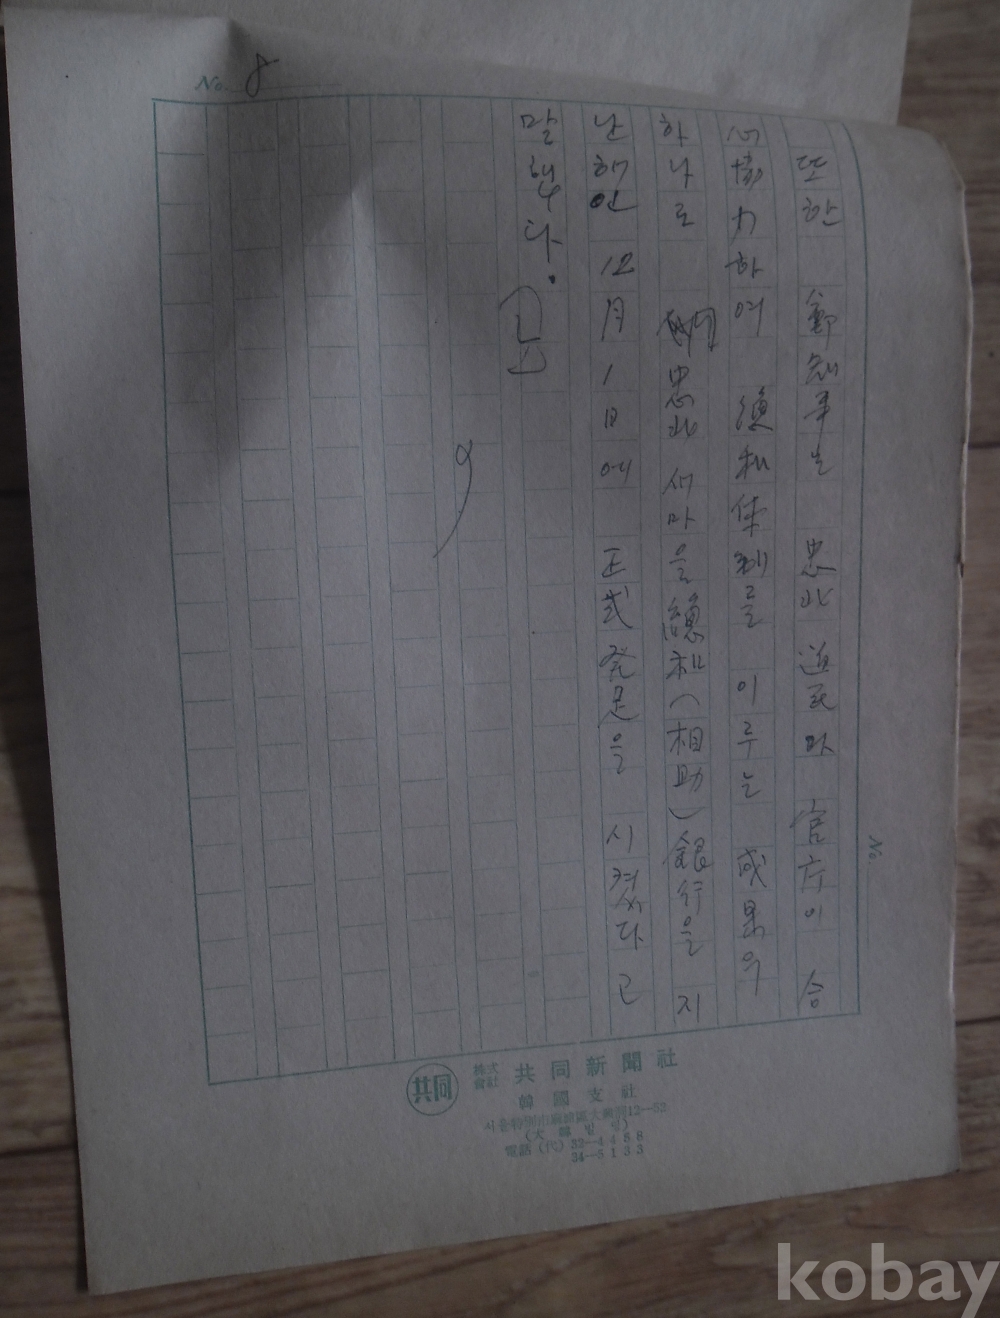 No. 8
또한 鄭知事는 忠北道民과 官庁이 合
心協力하여 總和体制를 이루는 成果의
하나로 忠北 새마을 總和(相助)銀行을 지
난해인 12月 1日에 正式 発足을 시켰다고
말했다. 끝
No.
共同
株式會社 共同新聞社
韓國支社
電話(代) 32-4458
34-5133
kobay